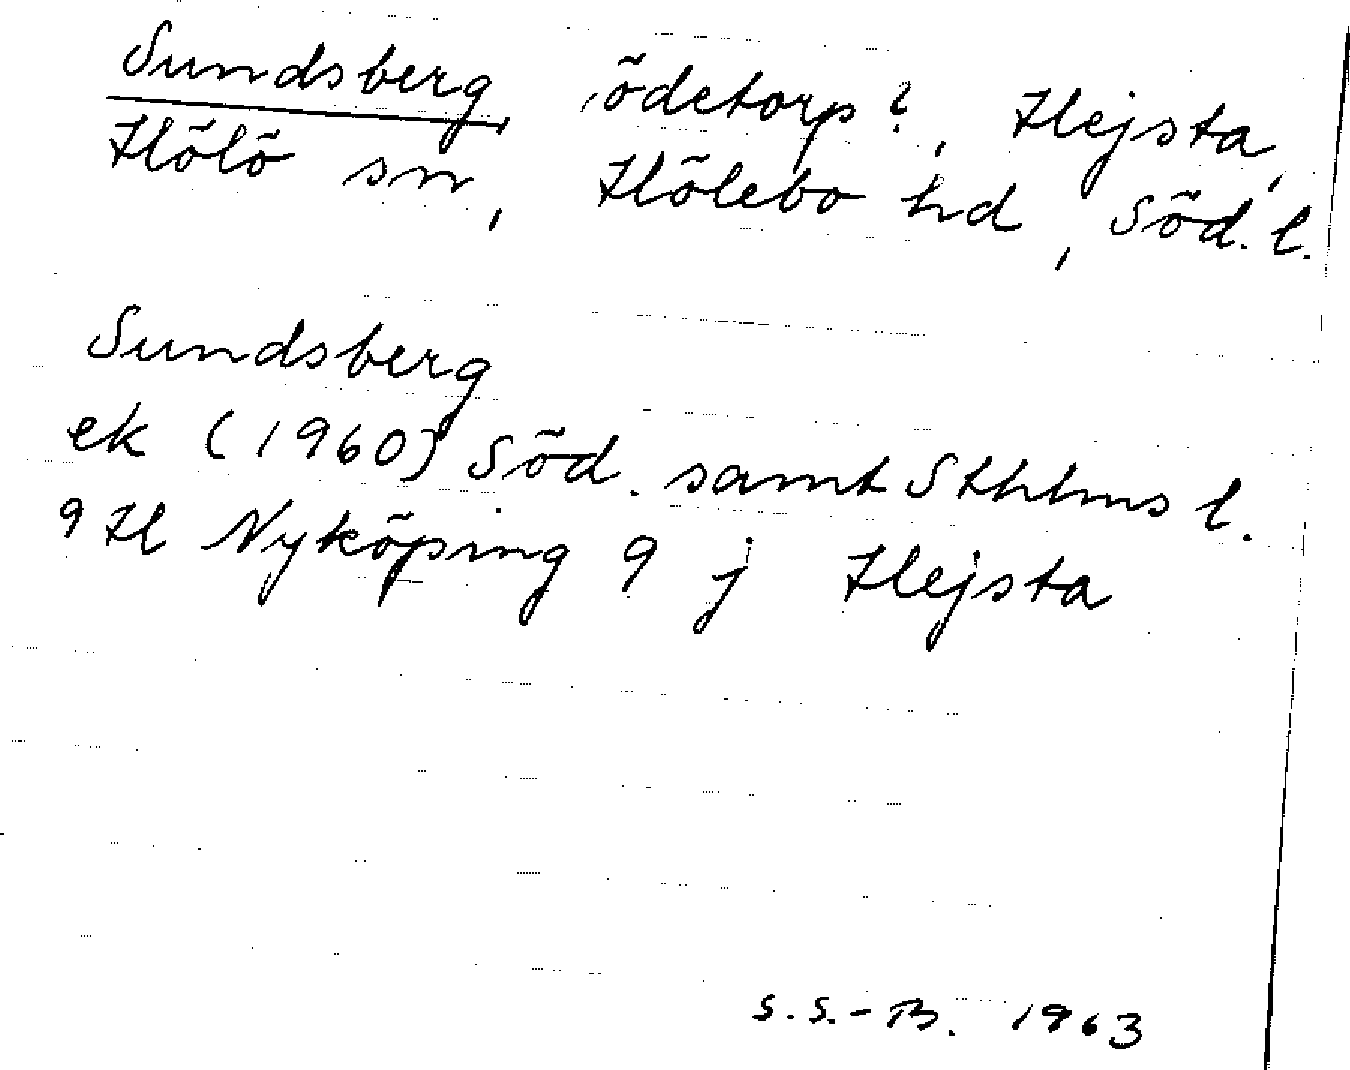 Sundsberg, ödetorp?, Hejsta,
Hölö sn, Hölebo hd, Söd. l.
Sundsberg
ek (1960) Söd. samt Sthlms l.
9H Nyköping 9 j Hejsta
S.S.-B. 1963